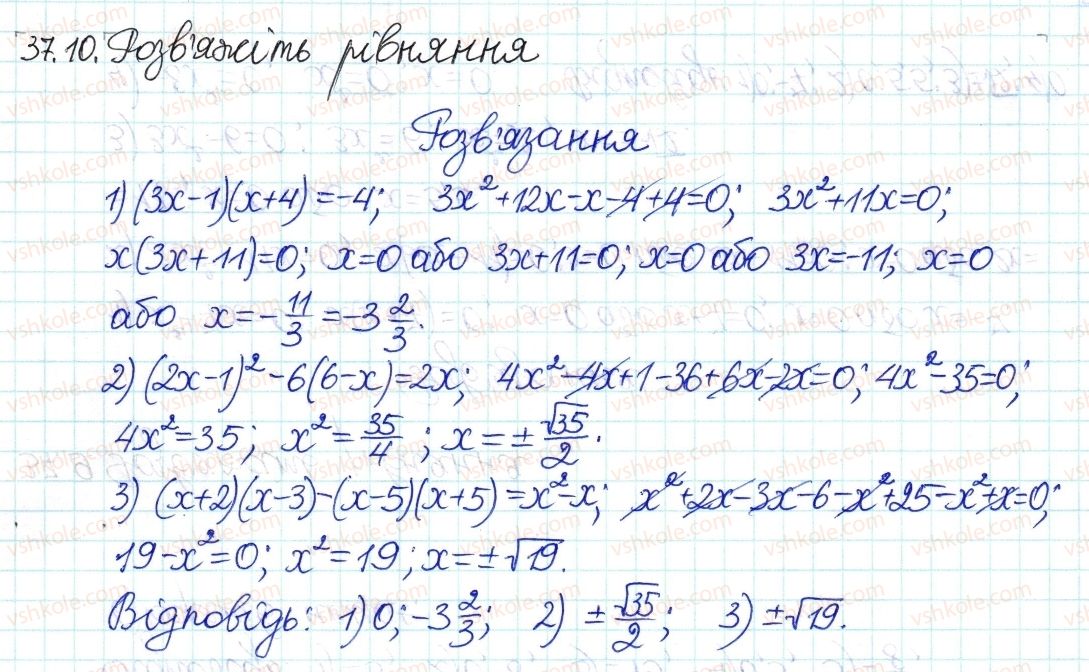 37.10. Розв'яжіть рівняння
Розв'язання
1) (3x-1)(x+4)=-4; 3x²+12x-x-4+4=0; 3x²+11x=0;
x(3x+11)=0; x=0 або 3x+11=0; x=0 або 3x=-11; x=0
або x=-11/3=-3 2/3.
2) (2x-1)²-6(6-x)=2x; 4x²-4x+1-36+6x-2x=0; 4x²-35=0;
4x²=35; x²=35/4; x=±√35/2.
3) (x+2)(x-3)-(x-5)(x+5)=x²-x; x²+2x-3x-6-x²+25-x²+x=0;
19-x²=0; x²=19; x=±√19.
Відповідь: 1) 0; -3 2/3; 2) ±√35/2; 3) ±√19.